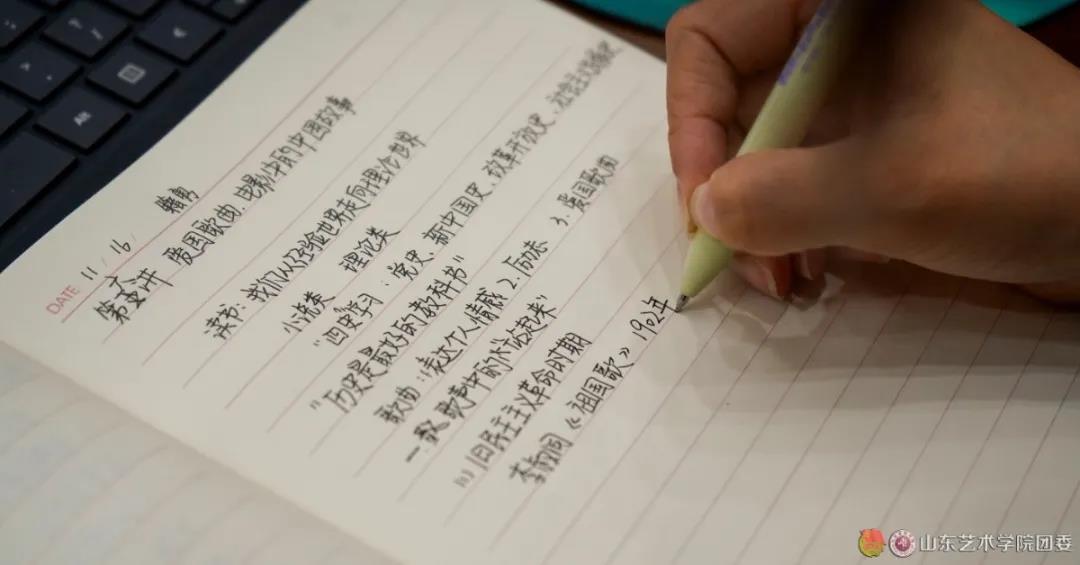 Alt
DATE 11 / 16 /
第六讲 爱国歌曲.电影中的中国故事
读书:我们从经验世界走向理论世界
小说类 理论类
"四史学习":党史、新中国史、改革开放史、社会主义发展史
"历史是最好的教科书"
歌曲:1.表达个人情感 2.励志 3.爱国歌曲
一.歌声中的"站起来"
(1)旧民主主义革命时期
李叔同《祖国歌》1902年
山东艺术学院团委